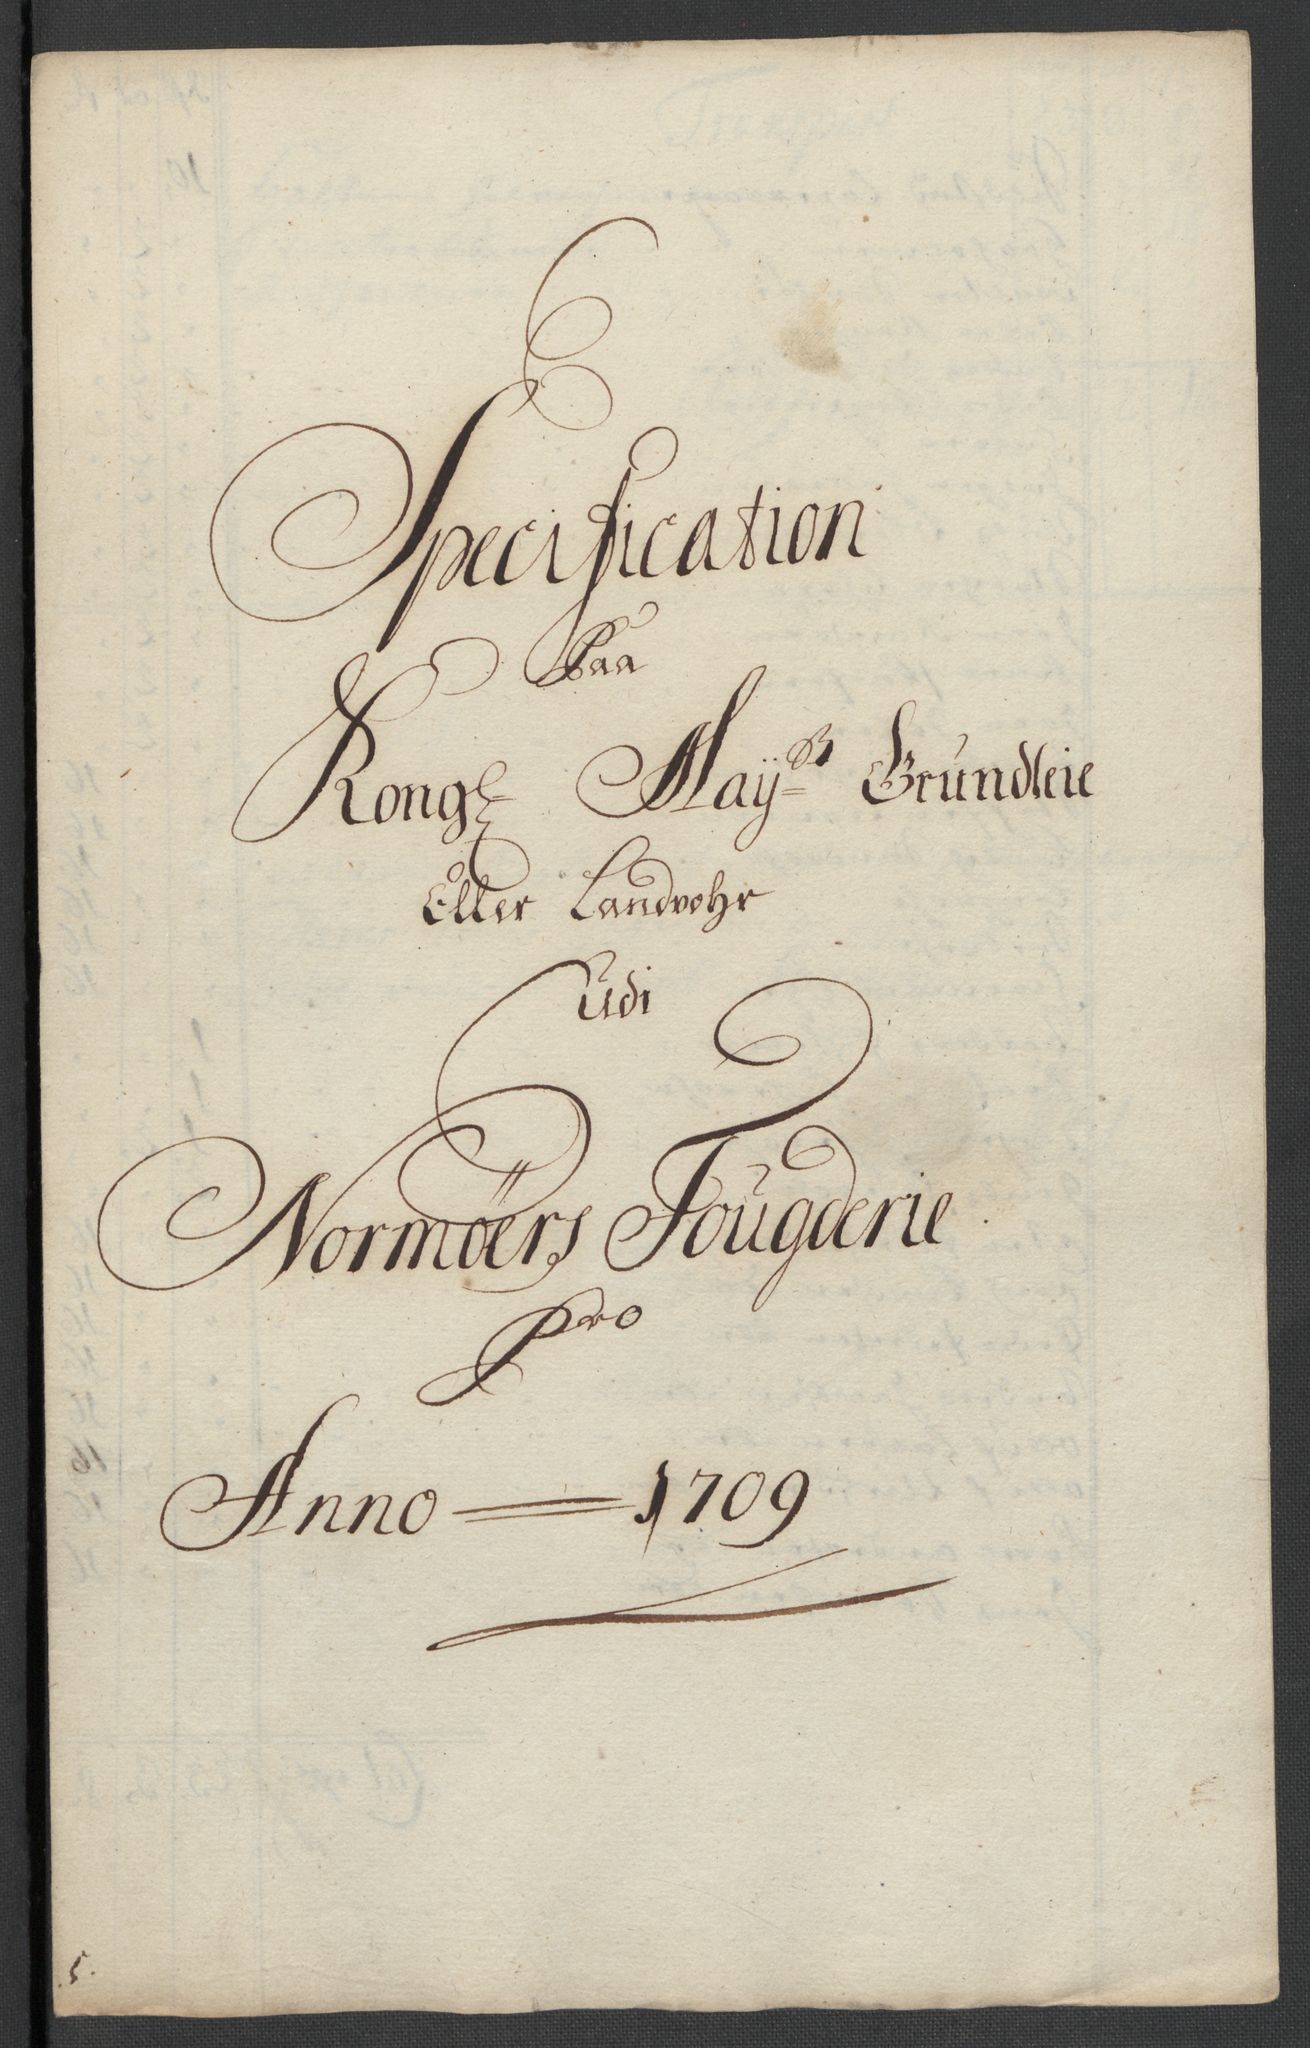 Specification
Paa
Kongl May:ts Grundleie
Eller Landvohr
Udi
Normöers Fougderie
Pro
Anno 1709
5.